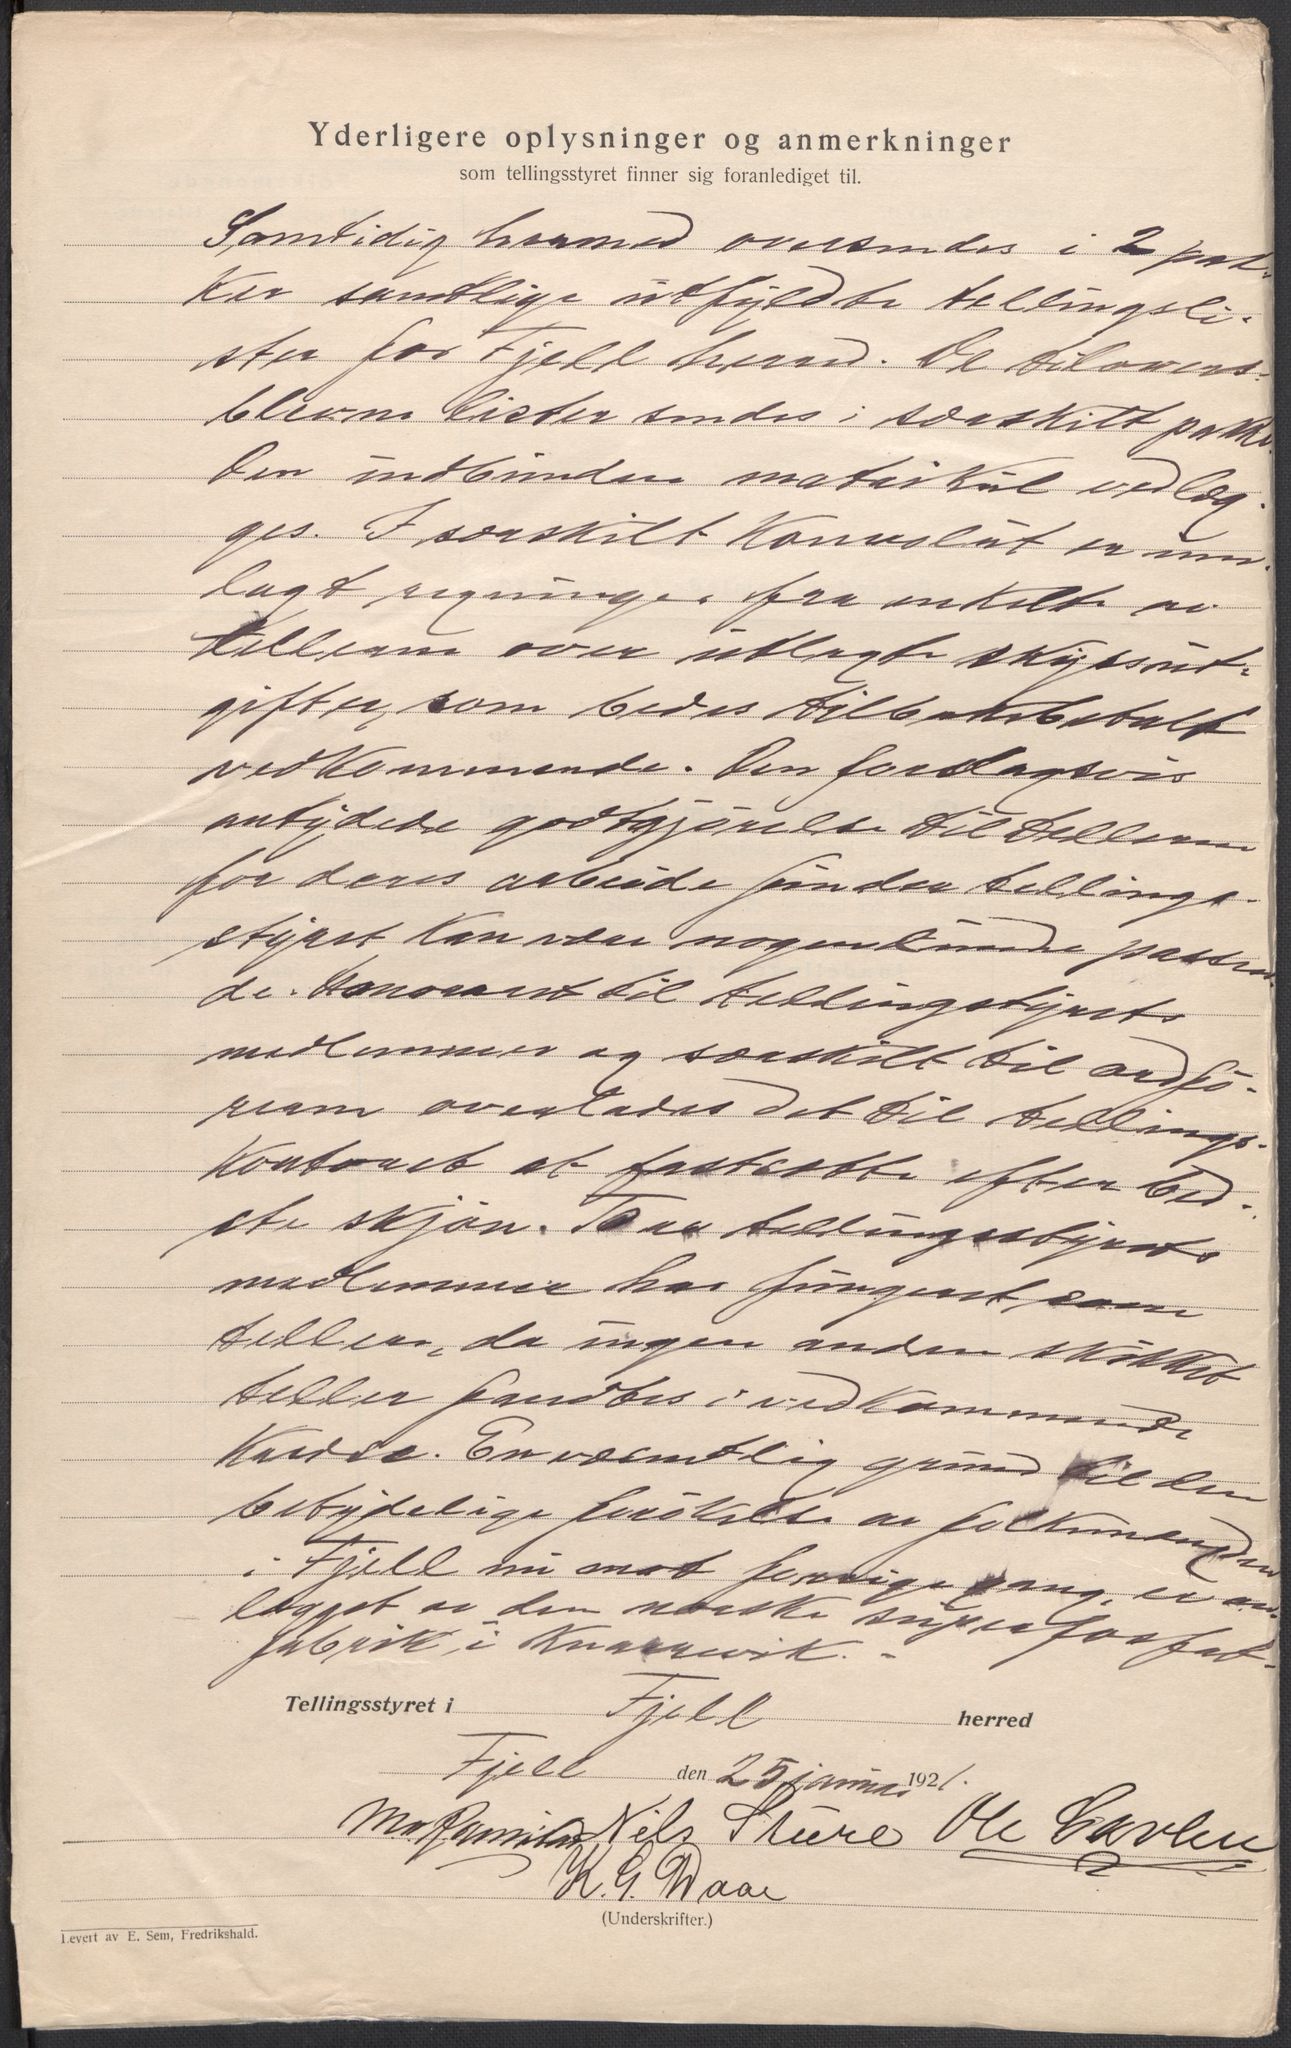 Yderligere oplysninger og anmerkninger
som tellingsstyret finner sig foranlediget til.
Samtidig hermed oversendes i 2 pak-
ker samtlige utfyldte tellingsli-
ster for Fjell herred. De tilovers-
blevne lister sendes i særskilt pakke.
Den indbundne matrikul vedlæg-
ges. I særskilt Konvolut er inn-
lagt regninger fra enkelte av
tellerne over utlagte skyssut-
gifter, som bedes tilbakebetalt
vedkommende. Den forslagsvis
antydede godtgjørelse til tellerne
for deres arbeide finder tellings-
styret kan være nogenlunde passen-
de. Honoraret til tellingsstyrets
medlemmer og særskilt til ordfø-
reren overlades det til tellings-
kontoret at fastsætte efter bed-
ste skjøn. To av tellingsstyrets
medlemmer har fungert som
tellere, da ingen anden skikket
teller fandtes i vedkommende
Kreds. En væsentlig grund til den
betydelige forøkelse av folkemengden
i Fjell nu mot forrige gang, er an-
lægget av den norske superfosfat-
fabrik i Knarrevik. -
Tellingsstyret i Fjell herred
Fjell den 25 januar 1921.
Nils Sture Ole
K. G. Waar
(Underskrifter.)
Levert av E. Sem, Fredrikshald.